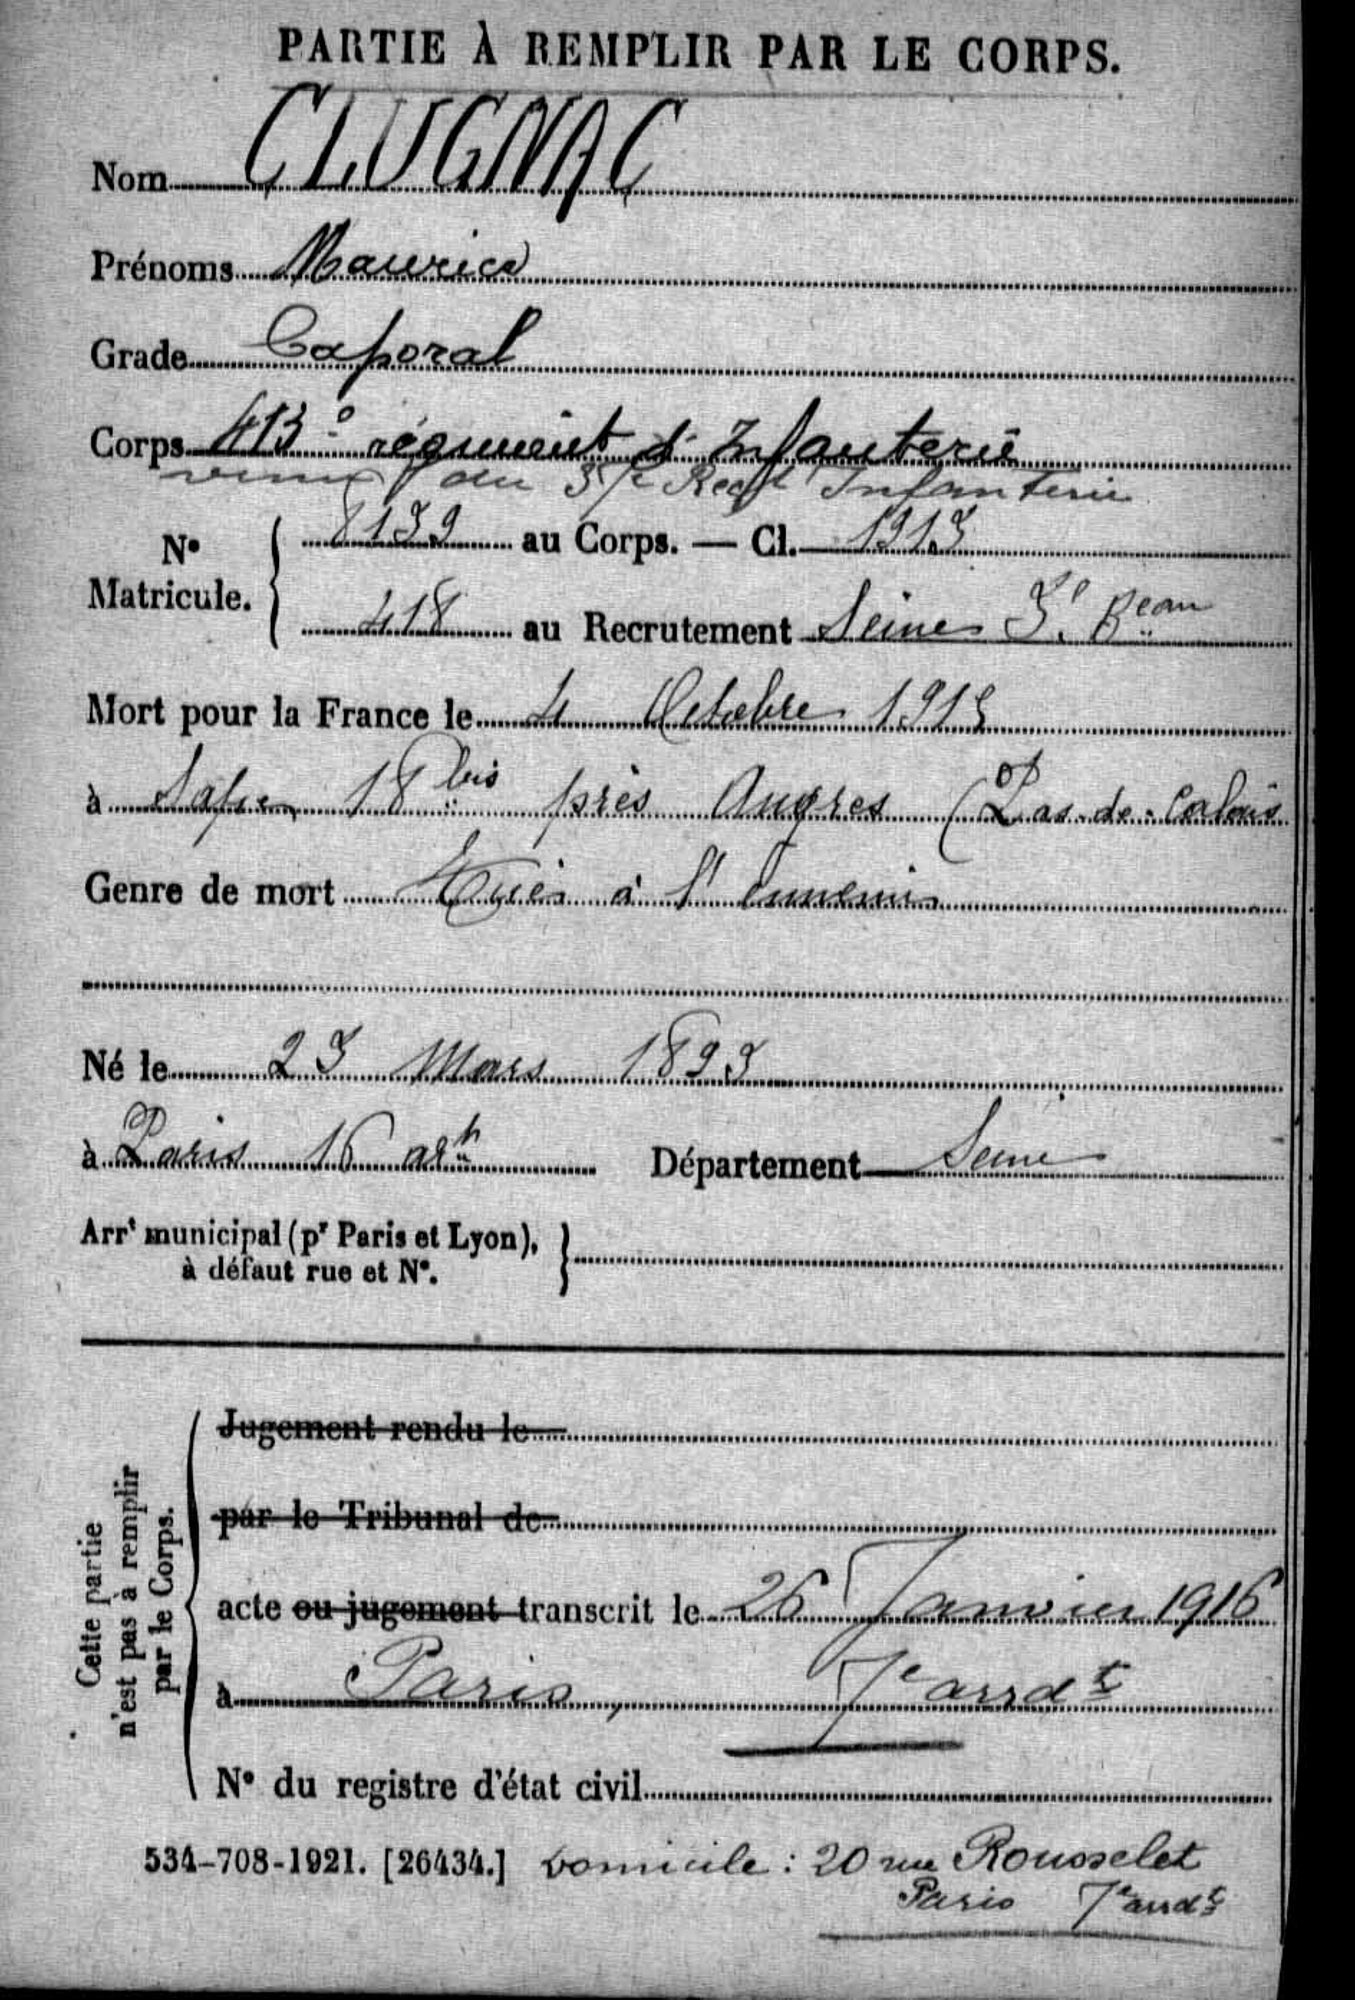 PARTIE À REMPLIR PAR LE CORPS.
Nom CLUGNAC
Prénoms Maurice
Grade Caporal
Corps 413e régiment d'Infanterie
venu du Regt Infanterie
No Matricule. 8139 au Corps. — Cl. 1913
418 au Recrutement Seine 3e Beau
Mort pour la France le 4 Octobre 1915
à Sape 18 bis près Angres (Pas-de-Calais
Genre de mort Tué à l'ennemi
Né le 23 Mars 1893
à Paris 16 arrt Département Seine
Arrt municipal (pr Paris et Lyon),
à défaut rue et No.
Cette partie
n'est pas à remplir
par le Corps.
Jugement rendu le
par le Tribunal de
acte ou jugement transcrit le 26 Janvier 1916
à Paris, 7e arrdt
No du registre d'état civil
534-708-1921. [26434.] Domicile : 20 rue Rousselet
Paris 7e arrdt